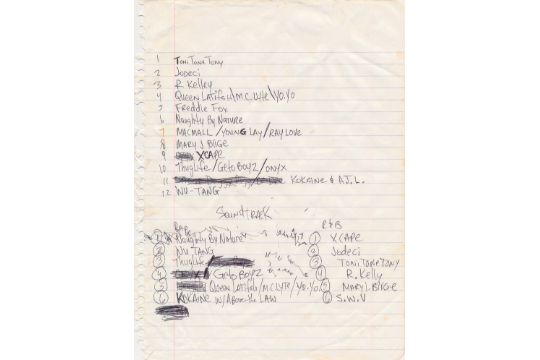 1 Toni Tone Tony
2 Jodeci
3 R Kelley
4 Queen Latifah/M.C. Lyte/Yo.Yo
5 Freddie Fox
6 Naughty By Nature
7 MACMALL/YOUNG LAY/RAY LOVE
8 MARY J Blige
9 XCAPE
10 ThugLife/Geto BoyZ/ONYX
11 KOKAINE & A.J.L.
12 WU-TANG
Soundtrack
RAP R&B
1 Naughty By Nature 1 XCAPE
2 WU TANG 2 Jodeci
3 ThugLife 3 TONI TONE TONY
4 Geto BoyZ 4 R. Kelly
5 Queen Latifah/MC LYTE/Yo.Yo. 5 MARY J. Blige
6 KOKAINE w/Above the LAW 6 S.W.V